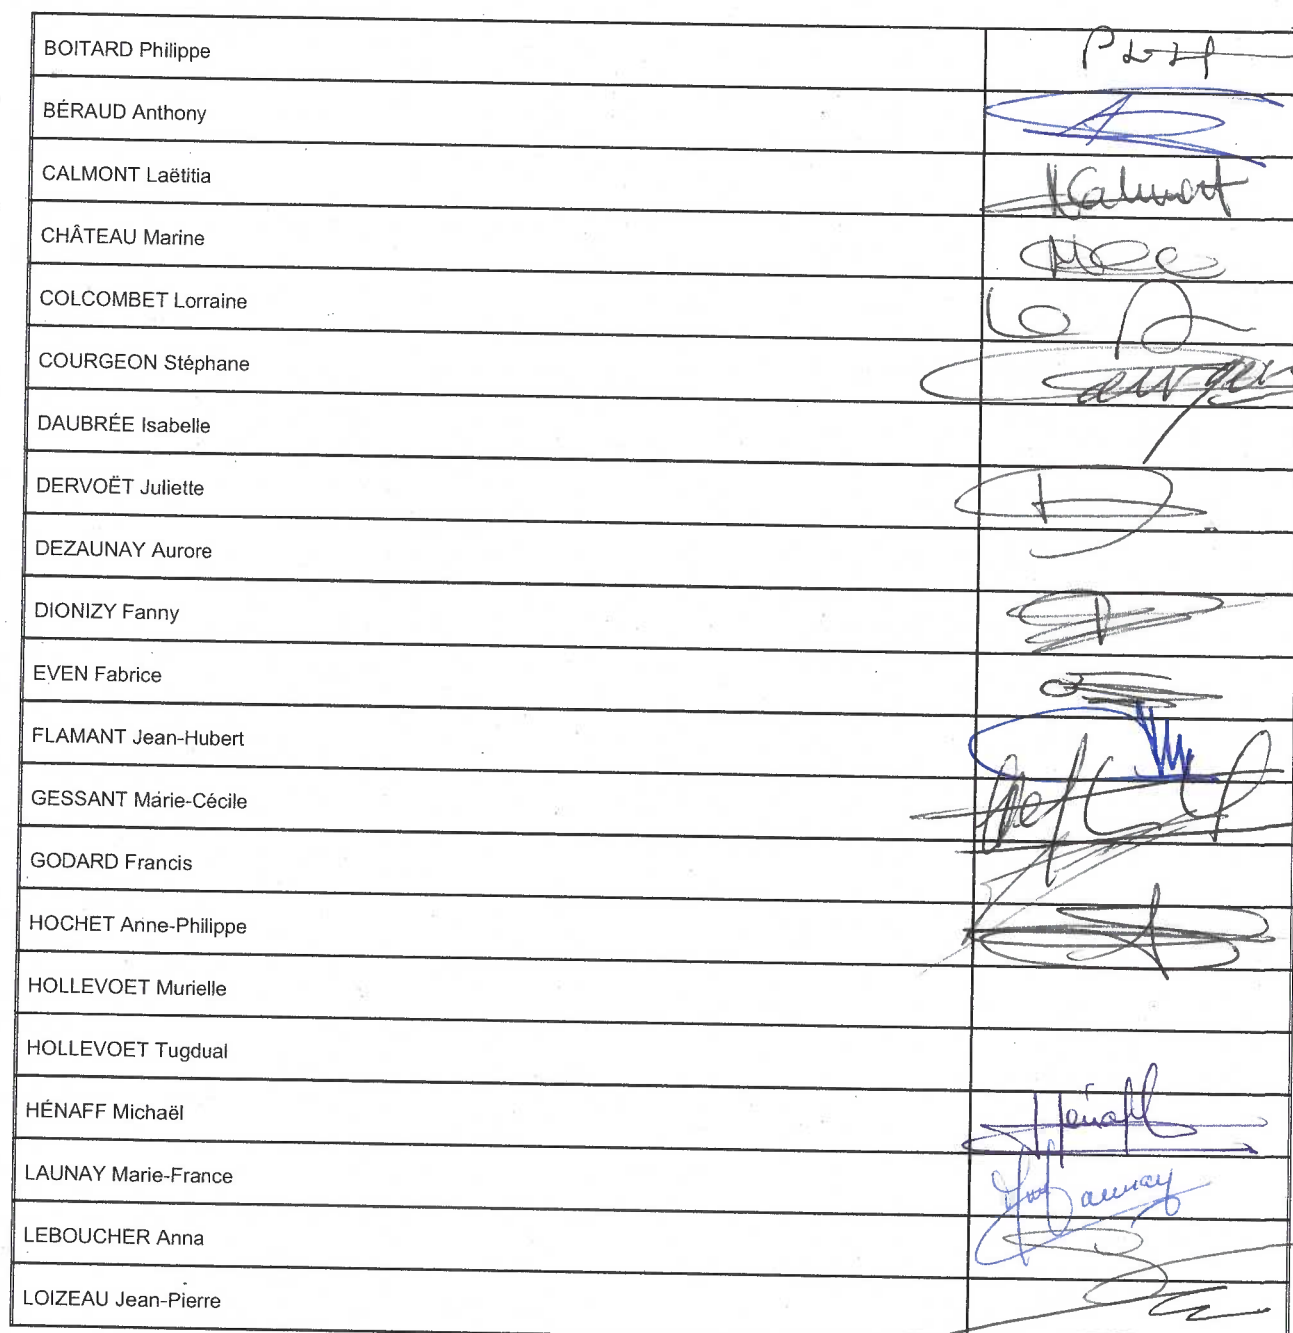 BOITARD Philippe
BÉRAUD Anthony
CALMONT Laëtitia
Calmont
CHÂTEAU Marine
COLCOMBET Lorraine
COURGEON Stéphane
DAUBRÉE Isabelle
DERVOËT Juliette
DEZAUNAY Aurore
DIONIZY Fanny
EVEN Fabrice
FLAMANT Jean-Hubert
GESSANT Marie-Cécile
GODARD Francis
HOCHET Anne-Philippe
HOLLEVOET Murielle
HOLLEVOET Tugdual
HÉNAFF Michaël
Hénaff
LAUNAY Marie-France
Launay
LEBOUCHER Anna
LOIZEAU Jean-Pierre